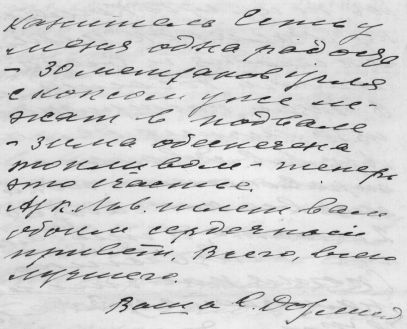 канитель Есть у
меня одна радость
- 30 метраков угля
с коксом уже ле-
жат в подвале
- зима обеспечена
топливом - теперь
это счастье.
Арк. Льв. шлет вам
обоим сердечный
привет. Всего, всего
лучшего.
Ваша С.